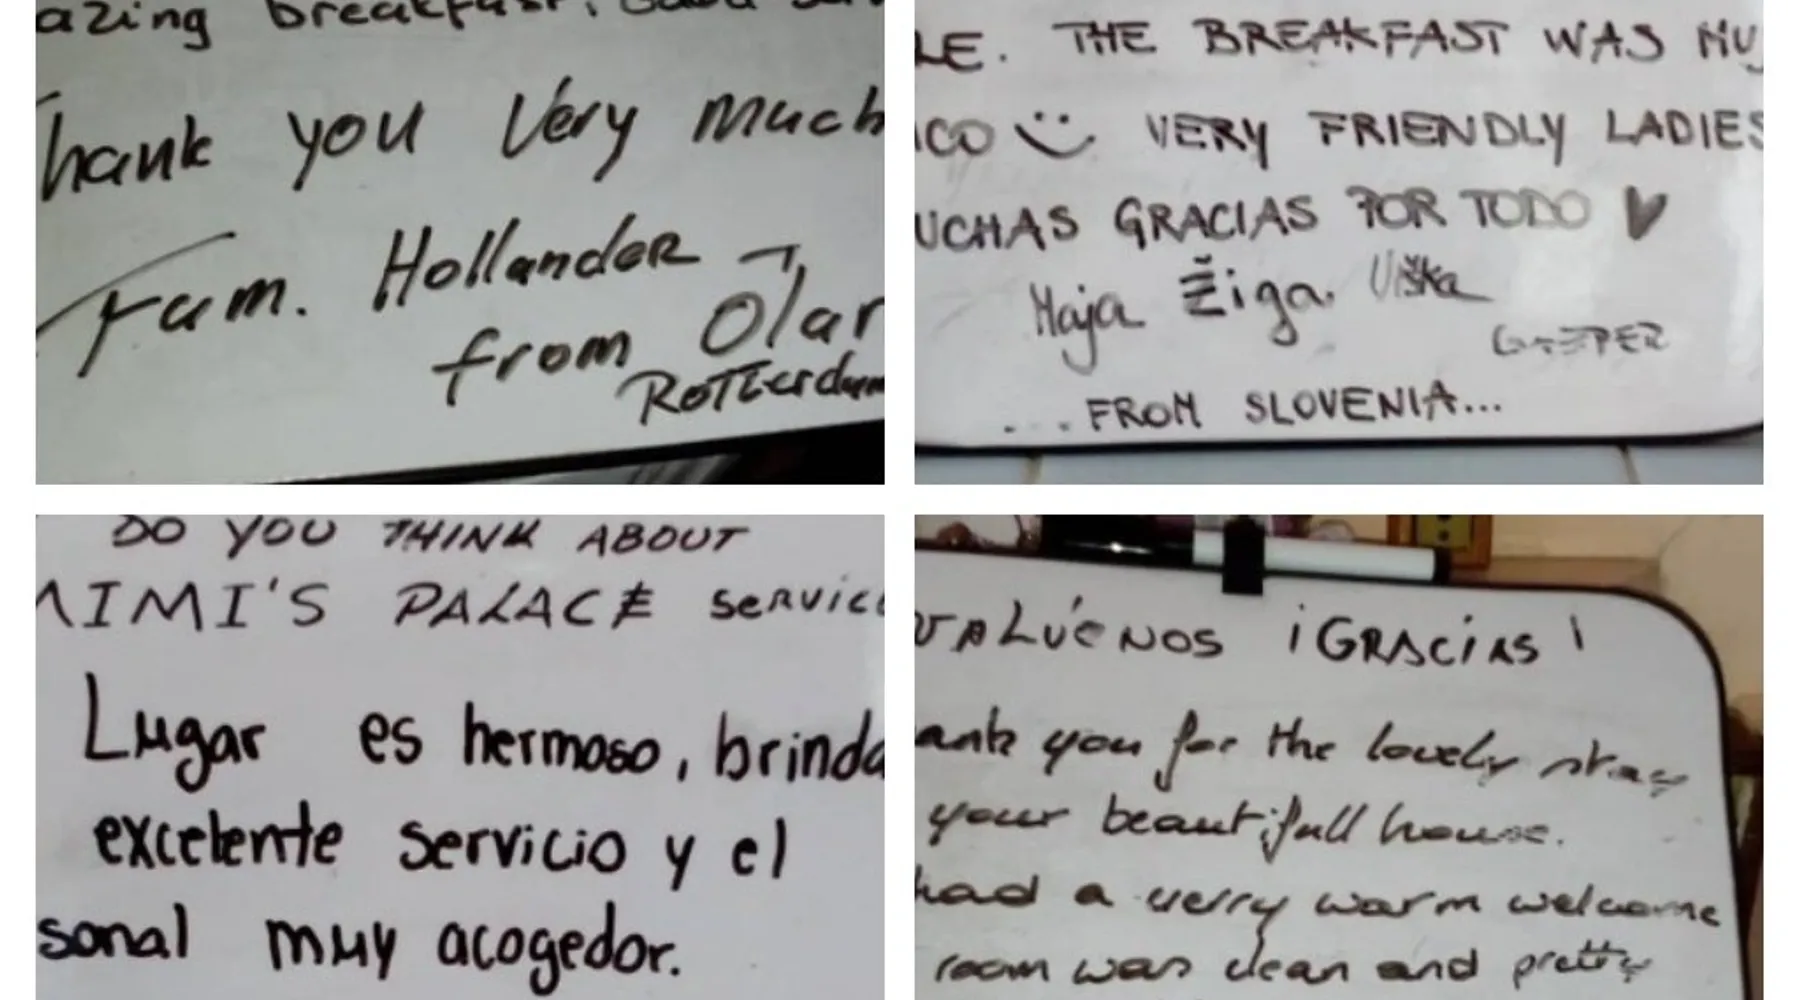 azing breakfast,
Thank you Very much
Fam. Hollander
from
Rotterdam
LE. THE BREAKFAST WAS MU
ICO VERY FRIENDLY LADIES
UCHAS GRACIAS POR TODO ♥
Maja Žiga Uška
GAŠPER
...FROM SLOVENIA...
DO YOU THINK ABOUT
MIMI'S PALACE service
Lugar es hermoso, brinda
excelente servicio y el
sonal muy acogedor.
VALÚENOS ¡GRACIAS!
ank you for the lovely stay
your beautifull house.
had a verry warm welcome
room was clean and pretty